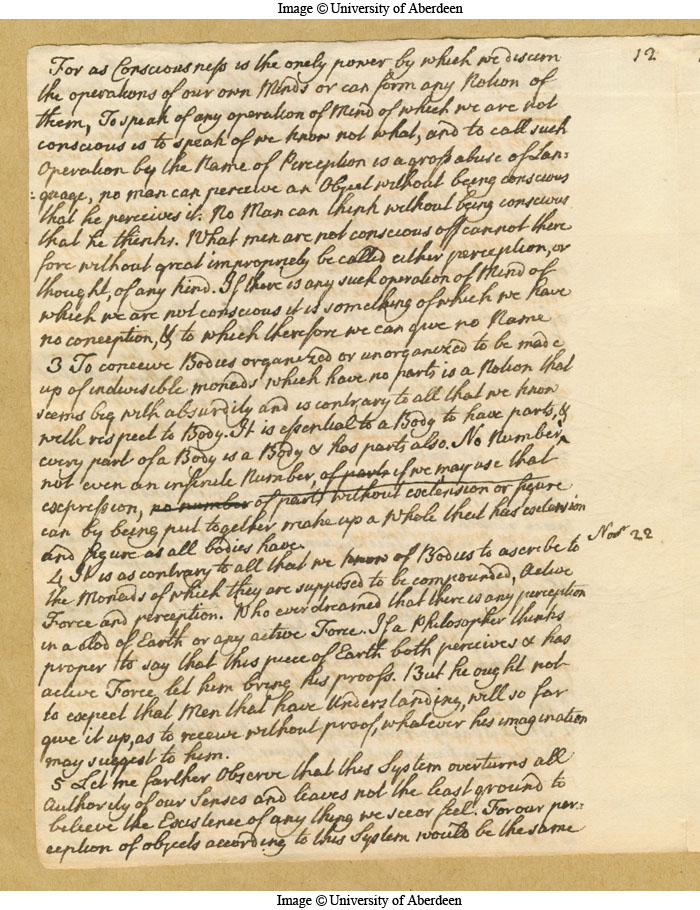 Image © University of Aberdeen
12
For as Consciousness is the onely power by which we discern
the operations of our own Minds or can form any Notion of
them, To speak of any operation of Mind of which we are not
conscious is to speak of we know not what, and to call such
Operation by the Name of Perception is a gross abuse of Lan:
:guage, no man can perceive an Object without being conscious
that he perceives it. No Man can think without being conscious
that he thinks. What men are not conscious off cannot there
fore without great impropriety be called either perception, or
thought, of any kind. If there is any such operation of Mind of
which we are not conscious it is something of which we have
no conception, & to which therefore we can give no Name
3 To conceive Bodies organized or unorganized to be made
up of indivisible monads which have no parts is a Notion that
seems big with absurdity and is contrary to all that we know
with respect to Body. It is essential to a Body to have parts, &
every part of a Body is a Body & has parts also. No Number,
not even an infinite Number, of parts if we may use that
expression, no number of parts without extension or figure
can by being put together make up a whole that has extension
and figure as all bodies have.
Novr 22
4 It is as contrary to all that we know of Bodies to ascribe to
the Monads of which they are supposed to be compounded, Active
Force and perception. Who ever dreamed that there is any perception
in a clod of Earth or any active Force. If a Philosopher thinks
proper to say that this piece of Earth both perceives & has
active Force, let him bring his proofs. But he ought not
to expect that Men that have Understanding, will so far
give it up, as to receive without proof, whatever his imagination
may suggest to him.
5 Let me farther Observe that this System overturns all
Authority of our Senses and leaves not the least ground to
believe the Existence of any thing we see or feel. For our per:
ception of objects according to this System would be the same
Image © University of Aberdeen